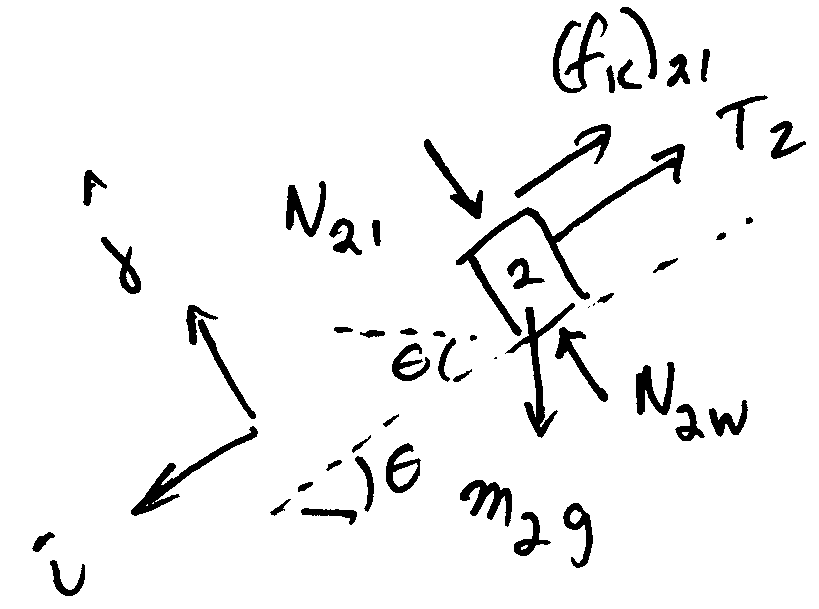 (fk)21
T2
N21
2
θ
N2W
θ
m2g